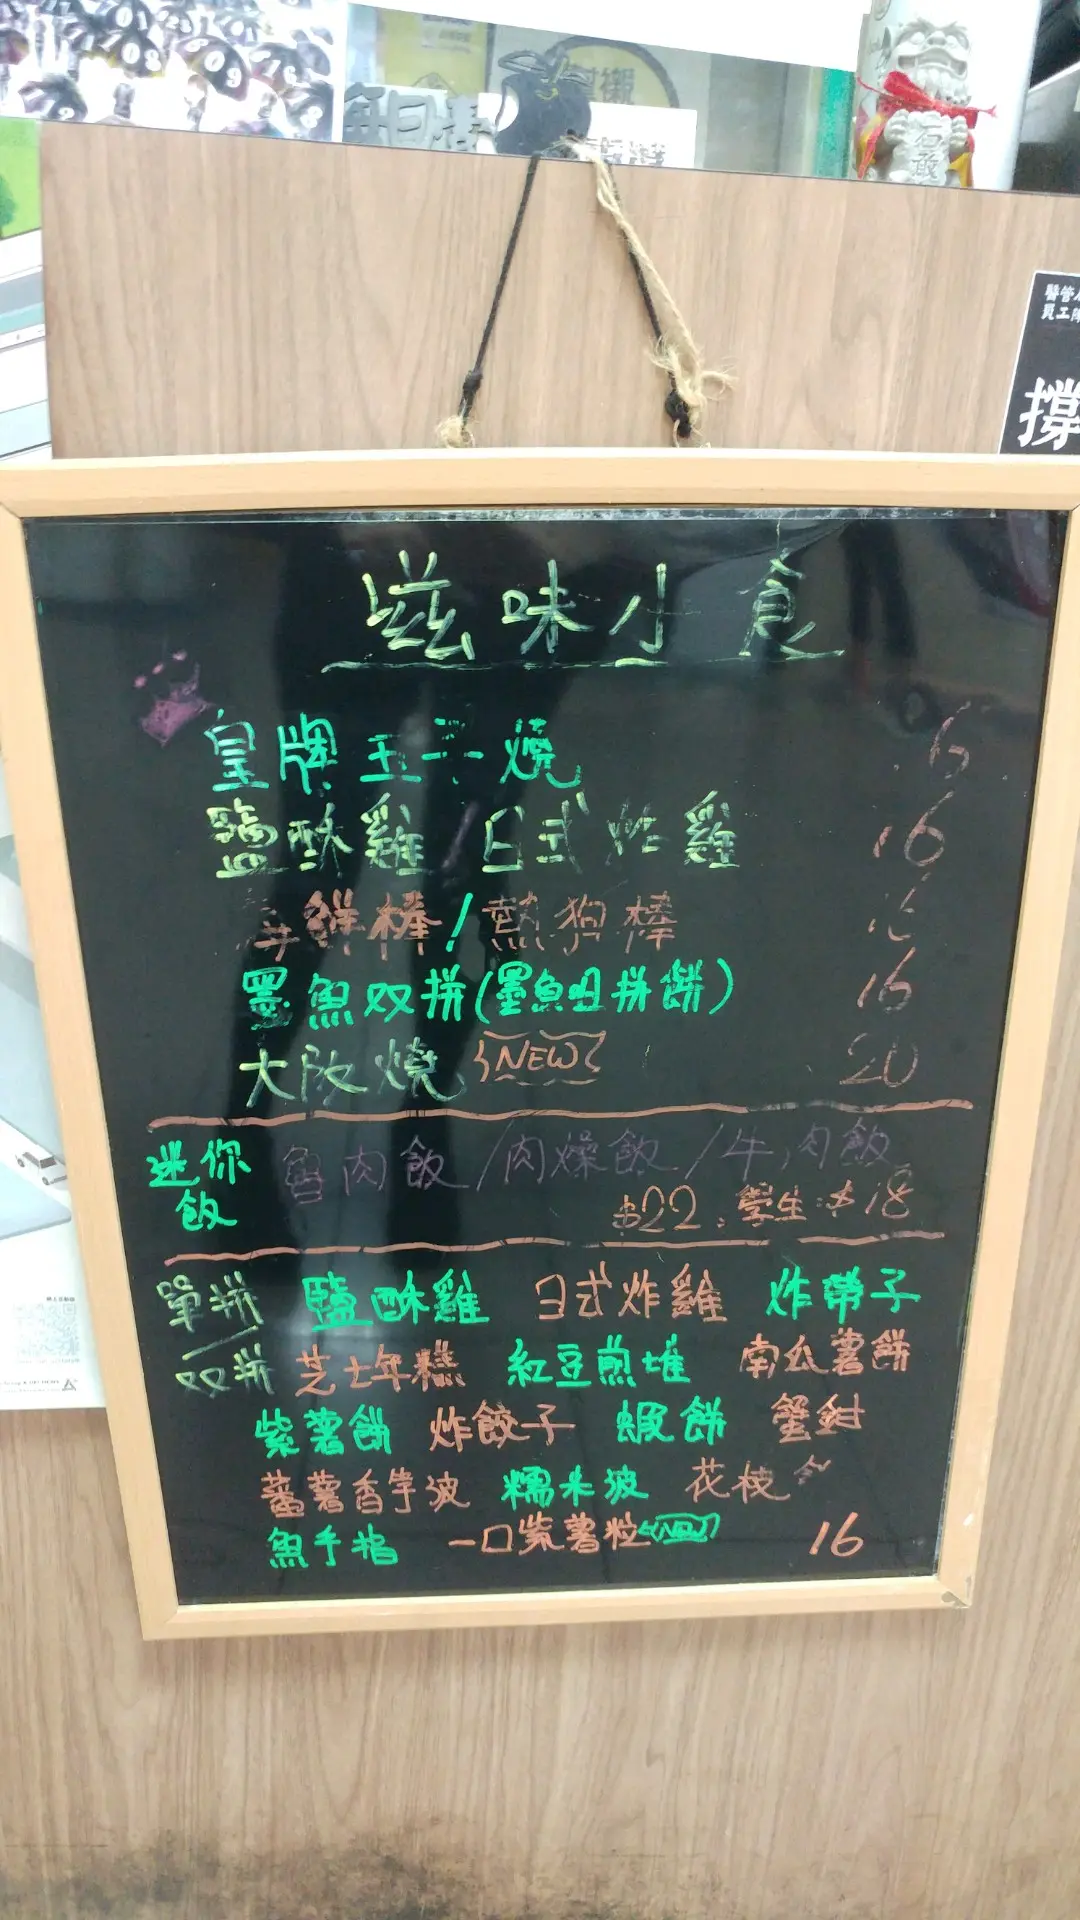 每日
石敢
醫管
員工陣
撐
滋味小食
皇牌玉子燒 6
鹽酥雞 日式炸雞 16
海鮮棒/熱狗棒
墨魚双拼(墨魚咀拼餅) 16
大阪燒 NEW 20
迷你飯
魯肉飯/肉燥飯/牛肉飯
$22, 學生:$18
單拼 鹽酥雞 日式炸雞 炸帶子
双拼 芝士年糕 紅豆煎堆 南瓜薯餅
紫薯餅 炸餃子 蝦餅 蟹鉗
蕃薯香芋波 糯米波 花枝
魚手指 一口紫薯粒 NEW 16